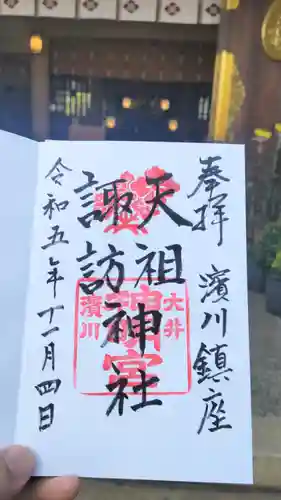 奉拝
濱川鎮座
天祖
諏訪
神社
大井
濱川
令和五年十一月四日